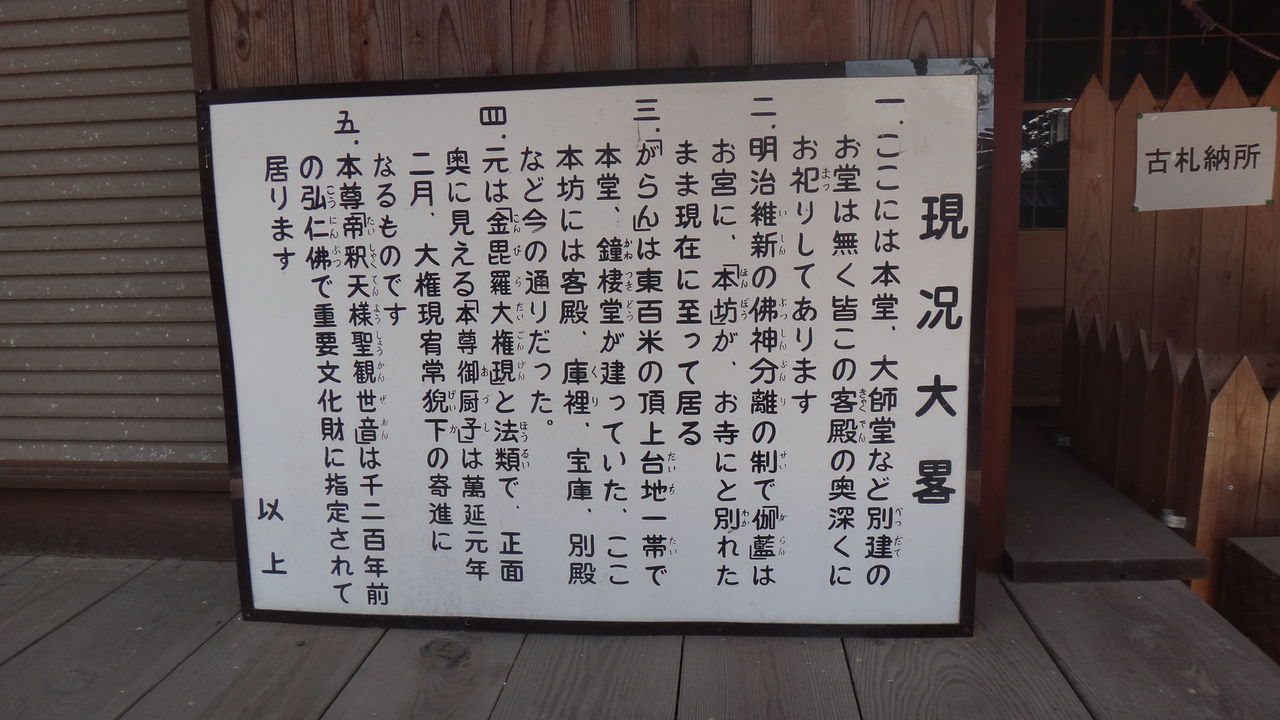 現況大畧
一.ここには本堂、大師堂など別建の
お堂は無く皆この客殿の奥深くに
お祀りしてあります
二.明治維新の佛神分離の制で「伽藍」は
お宮に、「本坊」が、お寺にと別れた
まま現在に至って居る
三.「がらん」は東百米の頂上台地一帯で
本堂、鐘楼堂が建っていた、ここ
本坊には客殿、庫裡、宝庫、別殿
など今の通りだった。
四.元は「金毘羅大権現」と法類で、正面
奥に見える「本尊御厨子」は萬延元年
二月、大権現宥常猊下の寄進に
なるものです
五.本尊「帝釈天様聖観世音」は千二百年前
の弘仁佛で重要文化財に指定されて
居ります
以上
古札納所